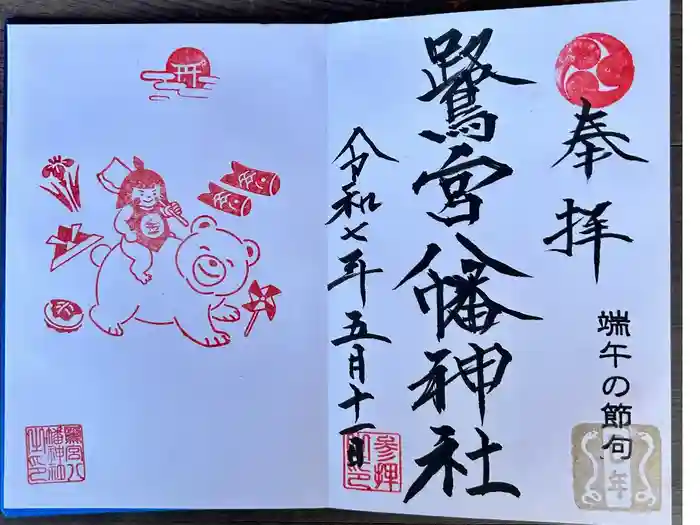 奉拝
端午の節句
鷺宮八幡神社
令和七年五月十一日
年
金
鷺宮八
幡神社
之印